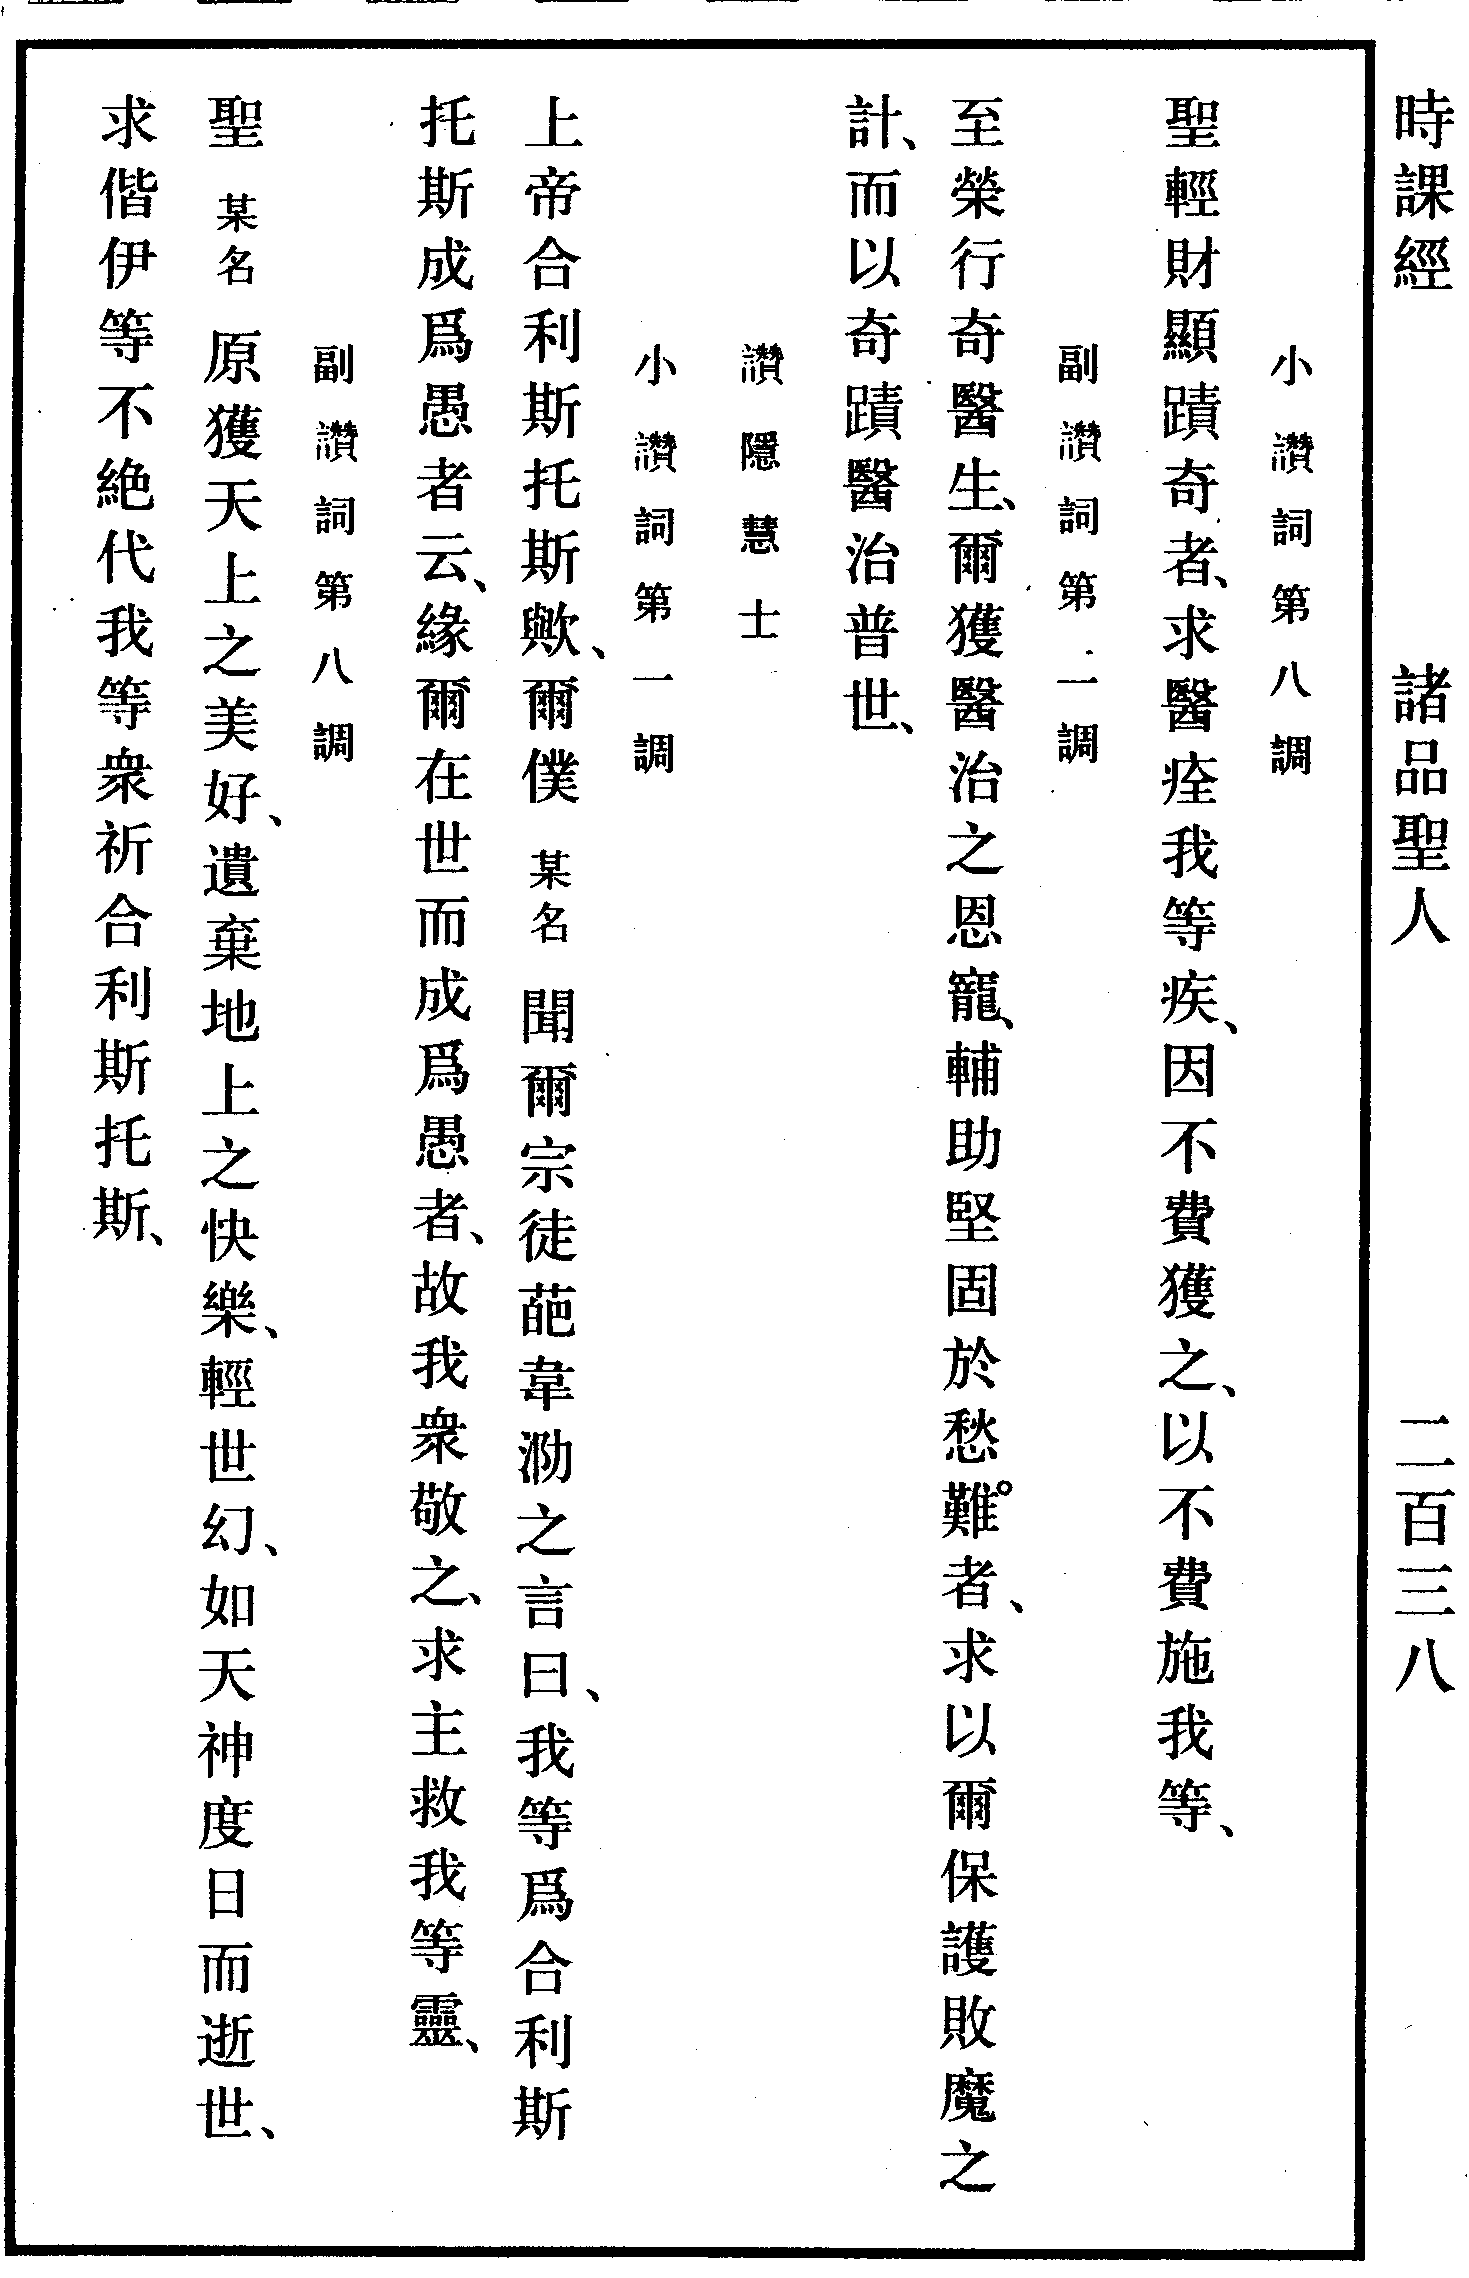 時課經 諸品聖人 二百三八
小讚詞第八調
聖輕財顯蹟奇者、求醫痊我等疾、因不費獲之、以不費施我等、
副讚詞第二調
至榮行奇醫生、爾獲醫治之恩寵、輔助堅固於愁難。者、求以爾保護敗魔之
計、而以奇蹟醫治普世、
讚隱慧士
小讚詞第一調
上帝合利斯托斯歟、爾僕 某名 聞爾宗徒葩韋泐之言曰、我等爲合利斯
托斯成爲愚者云、緣爾在世而成爲愚者、故我衆敬之、求主救我等靈、
副讚詞第八調
聖 某名 原獲天上之美好、遺棄地上之快樂、輕世幻、如天神度日而逝世、
求偕伊等不絕代我等衆祈合利斯托斯、